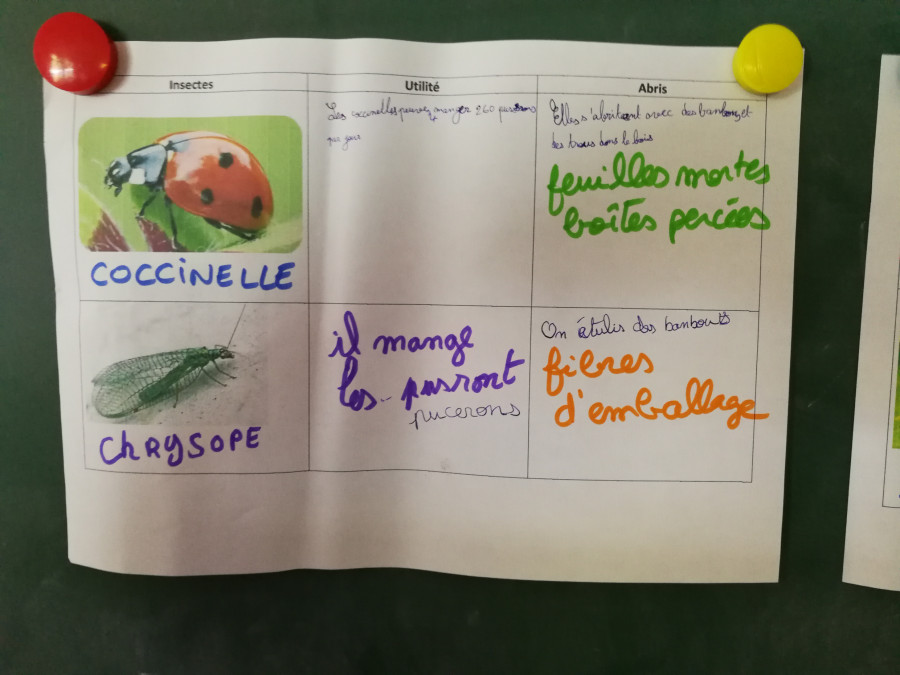 Insectes
Utilité
Abris
COCCiNELLE
Les coccinelles peuvent manger 260
par jour
Elles s'abritent avec des et
des trous dans le bois
feuilles mortes
boîtes percées
ChRYSOPE
il mange
les pusront
pucerons
On des
fibres
d'emballage